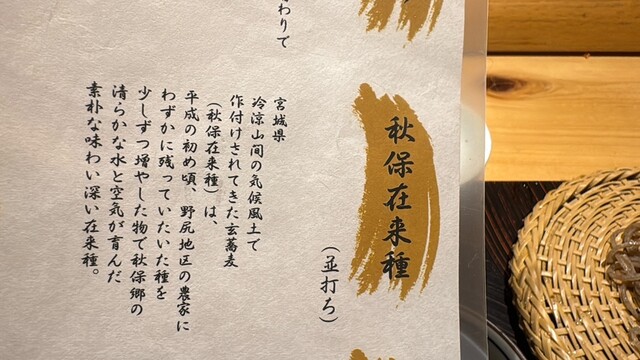 秋保在来種
(並打ち)
宮城県
冷涼山間の気候風土で
作付けされてきた玄蕎麦
(秋保在来種)は、
平成の初め頃、野尻地区の農家に
わずかに残っていたいた種を
少しずつ増やした物で秋保郷の
清らかな水と空気が育んだ
素朴な味わい深い在来種。
わりで